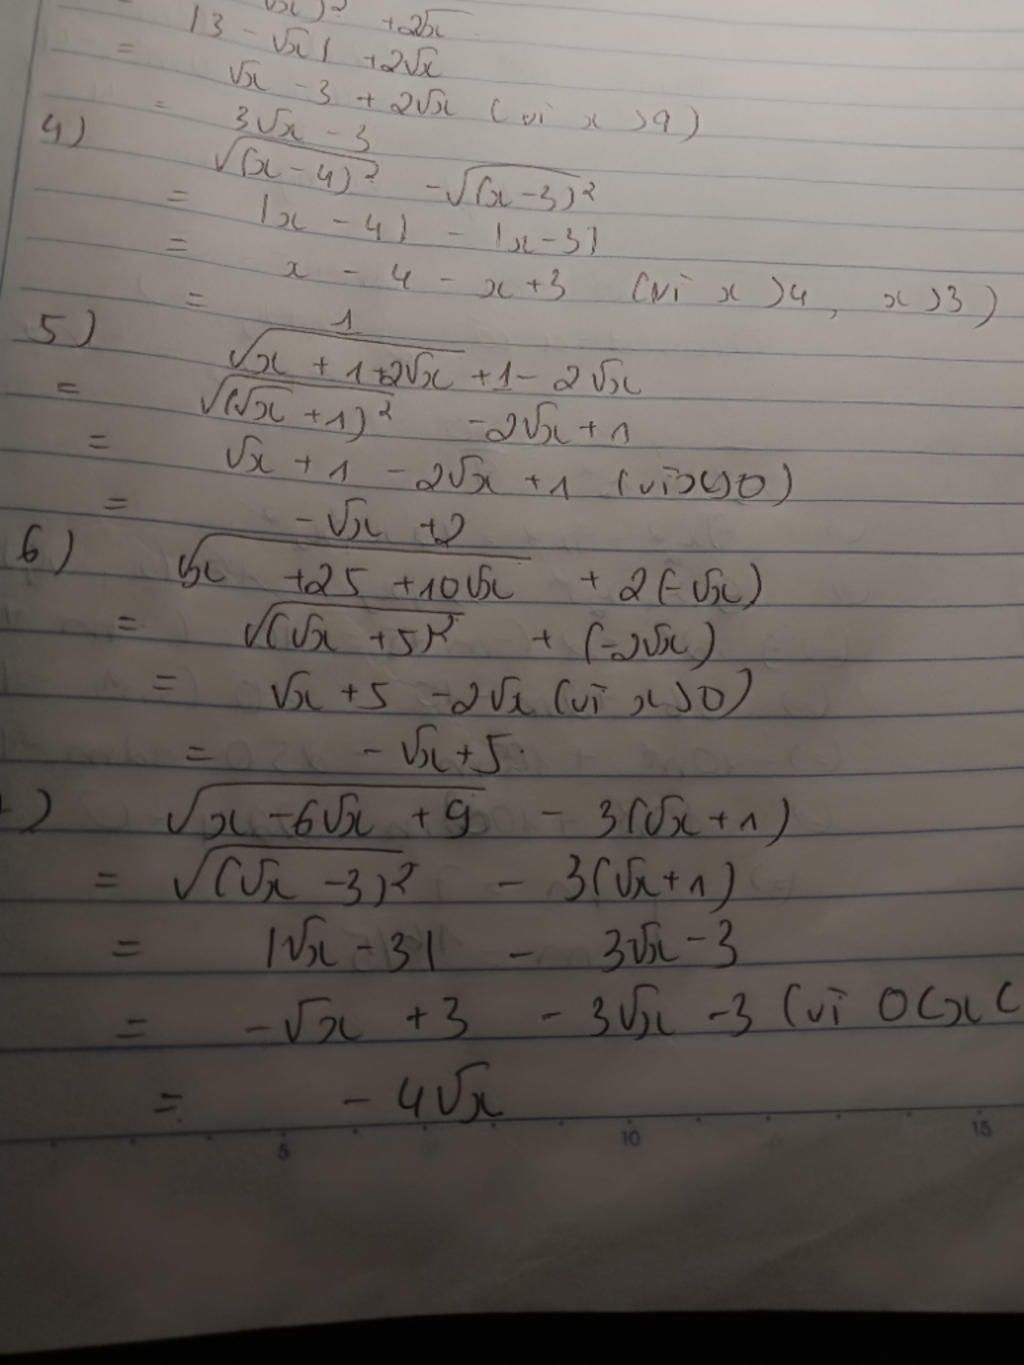 √x)² + 2√x
= |3 - √x| + 2√x
= √x - 3 + 2√x (vì x > 9)
= 3√x - 3
4) √(x - 4)² - √(x - 3)²
= |x - 4| - |x - 3|
= x - 4 - x + 3 (vì x > 4, x > 3)
= 1
5) √x + 1 + 2√x + 1 - 2√x
= √(√x + 1)² - 2√x + 1
= √x + 1 - 2√x + 1 (vì x > 0)
= -√x + 2
6) √x + 25 + 10√x + 2(-√x)
= √(√x + 5)² + (-2√x)
= √x + 5 - 2√x (vì x > 0)
= -√x + 5
) √x - 6√x + 9 - 3(√x + 1)
= √(√x - 3)² - 3(√x + 1)
= |√x - 3| - 3√x - 3
= -√x + 3 - 3√x - 3 (vì 0 < x <
= -4√x
5 10 15